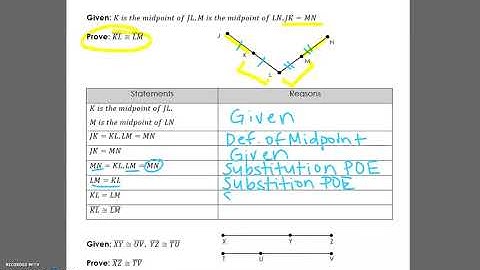 Given: K is the midpoint of JL, M is the midpoint of LN, JK = MN
Prove: KL ≅ LM
J
K
L
M
N
Statements Reasons
K is the midpoint of JL.
M is the midpoint of LN Given
JK = KL, LM = MN Def. of Midpoint
JK = MN Given
MN = KL, LM = MN Substitution POE
LM = KL Substition POE
KL = LM S
KL ≅ LM
Given: XY ≅ UV, YZ ≅ TU
Prove: XZ ≅ TV
X Y Z
T U V
RECORDED WITH